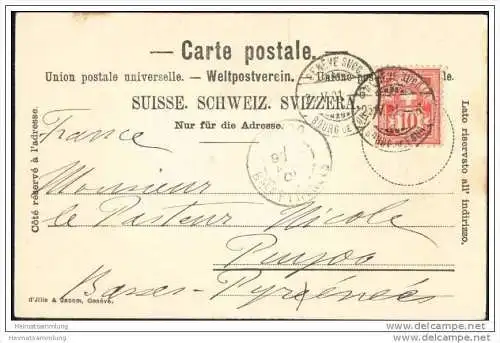 — Carte postale. —
Union postale universelle. – Weltpostverein. – Unione postale universale.
SUISSE. SCHWEIZ. SVIZZERA.
Nur für die Adresse.
Côté réservé à l'adresse.
Lato riservato all' indirizzo.
10
France
Monsieur
le Pasteur Nicole
Puyoo
Basses-Pyrénées
Genève.
Heimatsammlung
Heimatsammlung
delcampe.net